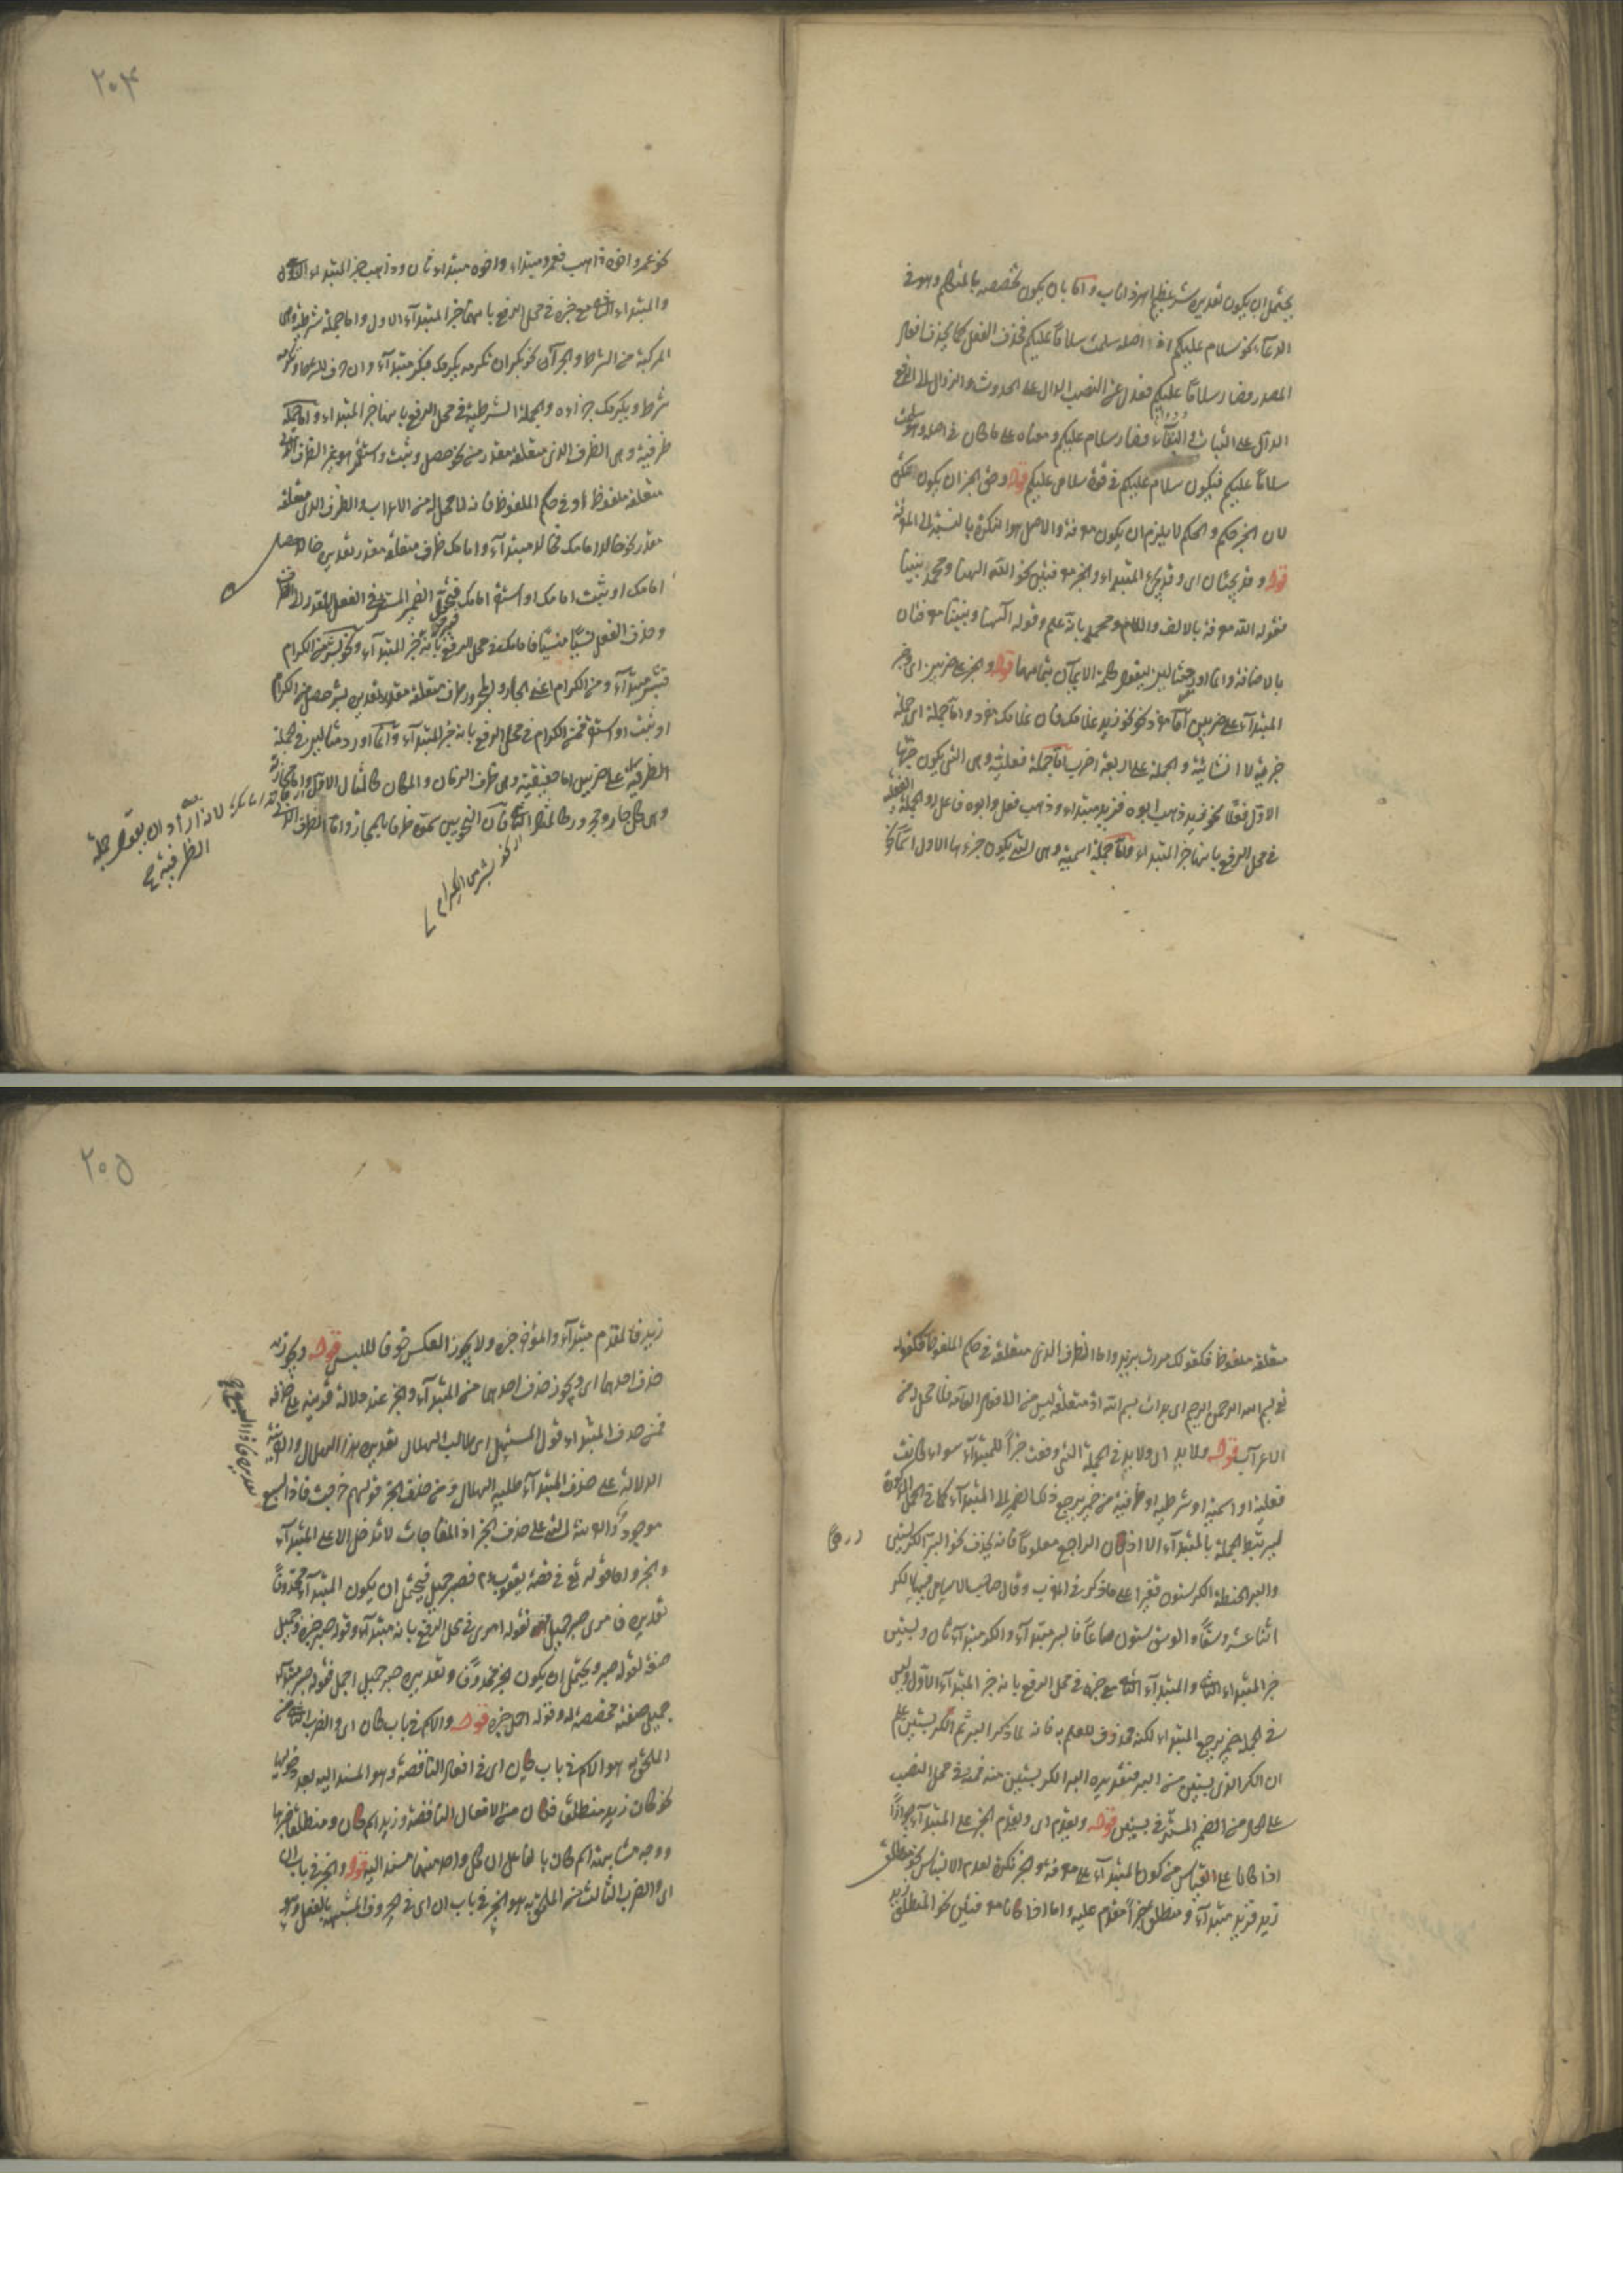 يحتمل ان يكون تقديره شر عظيم اهر ذا ناب واما بان يكون تخصصه بالمتكلم وهو في
الدعاء نحو سلام عليكم اذ اصله سلمت سلاما عليكم فحذف الفعل كما يحذف افعال
المصدر فصار سلاما عليكم فعدل عن النصب الدال على الحدوث والزوال الى الرفع
الدال على الثبات والبقاء فصار سلام عليكم ومعناه على ما كان في اصله وهو سلمت
سلاما عليكم فيكون سلام عليكم في قوة سلامى عليكم قوله وحق الخبر ان يكون نكرة
لان الخبر حكم والحكم لا يلزم ان يكون معرفة والاصل هو النكرة بالنسبة الى المعرفة
قوله وقد يجيئان اى وقد يجىء المبتداء والخبر معرفتين نحو الله الهنا ومحمد نبينا
فقوله الله معرفة بالالف واللام ومحمد بانه علم وقوله الهنا ونبينا معرفتان
بالاضافة وانما اورد مثالين قوله والخبر على ضربين اى خبر
المبتداء على ضربين اما مفرد نحو زيد غلامك فان غلامك مفرد واما جملة اى جملة
خبرية لا انشائية والجملة على اربعة اضرب اما جملة فعلية وهى التى يكون جزئها
الاول فعلا نحو زيد ذهب ابوه فزيد مبتداء وذهب فعل وابوه فاعله والجملة الفعلية
في محل الرفع بانها خبر المبتداء واما جملة اسمية وهى التى يكون جزءها الاول اسما
٢٠٤
نحو عمرو اخوه ذاهب فعمرو مبتداء واخوه مبتداء ثان وذاهب خبر المبتداء الثانى
والمبتداء الثانى مع خبره في محل الرفع بانها خبر المبتداء الاول واما جملة شرطية وهى
المركبة من الشرط والجزاء نحو بكر ان تكرمه يكرمك فبكر مبتداء وان حرف الشرط وتكرمه
شرط ويكرمك جزاءه والجملة الشرطية في محل الرفع بانها خبر المبتداء واما جملة
ظرفية وهى الظرف الذى متعلقه مقدر من نحو حصل وثبت واستقر
متعلقه ملفوظ او في حكم الملفوظ فانه لا محل له من الاعراب والظرف الذى متعلقه
مقدر نحو خالد امامك فخالد مبتداء وامامك ظرف متعلقه مقدر تقديره خالد حصل
امامك او ثبت امامك او استقر امامك الضمير المستتر في الفعل المقدر الى الظرف
وحذف الفعل نسيا منسيا فامامك في محل الرفع بانه خبر المبتداء ونحو بشر من الكرام
فبشر مبتداء ومن الكرام اعنى الجار والمجرور ظرف متعلقه مقدر تقديره بشر حصل من الكرام
او ثبت او استقر فمن الكرام في محل الرفع بانه خبر المبتداء وانما اورد مثالين في جملة
الظرفية على ضربين اما حقيقية وهى ظرف الزمان والمكان كالمثال الاول واما مجازية
وهى كل جار ومجرور كالمثال الثانى فان النحويين سموه ظرفا بالمجاز واما الظرف الذى
لانه اراد ان يقول جملة
الظرفية
نحو بشر من الكرام
متعلقه ملفوظ فكقولك مررت بزيد واما الظرف الذى متعلقه في حكم الملفوظ فكقوله
بسم الله الرحمن الرحيم اى بدات بسم الله اذ متعلقه ليس من الافعال العامة فلا محل له من
الاعراب قوله ولا بد اى ولا بد في الجملة التى وقعت خبرا للمبتداء سواء كانت
فعلية او اسمية او شرطية او ظرفية من ضمير يرجع ذلك الضمير الى المبتداء كما في الجمل المذكورة
ليرتبط الجملة بالمبتداء الا اذا كان الراجع معلوما فانه يحذف نحو البر الكر بستين
والبر الحنطة الكر ستون قفيزا على ما ذكر في المغرب وقال صاحب
اثنا عشر وسقا والوسق ستون صاعا فالبر مبتداء والكر مبتداء ثان وبستين
خبر المبتداء الثانى والمبتداء الثانى مع خبره في محل الرفع بانه خبر المبتداء الاول وليس
في الجملة ضمير يرجع المبتداء لكنه محذوف للعلم به فانه لما ذكر البر ثم الكر بستين علم
ان الكر الذى بستين من البر فتقديره البر الكر بستين منه فمنه في محل النصب
على الحال من الضمير المستتر في بستين قوله ويقدم اى ويقدم الخبر على المبتداء جوازا
اذا كانا على القياس من كون المبتداء على معرفة والخبر نكرة لعدم الالتباس نحو منطلق
زيد فزيد مبتداء ومنطلق خبرا مقدم عليه واما اذا كانا معرفتين نحو المنطلق زيد
٢٠٥
زيد فالمقدم مبتداء والمؤخر خبره ولا يجوز العكس خوفا للبس قوله ويجوز
حذف احدهما اى ويجوز حذف احدهما من المبتداء والخبر عند دلالة قرينة على حذفه
فمن حذف المبتداء قول المستهل اى طالب الهلال تقديره هذا الهلال والقرينة
الدلالة على حذف المبتداء طلبه الهلال ومن حذف الخبر قولهم خرجت فاذا السبع
موجود والقرينة على حذف الخبر اذ المفاجات لا تدخل الا على المبتداء
والخبر واما قوله تع في قصة يعقوب فصبر جميل فيحتمل ان يكون المبتداء محذوفا
تقديره فامرى صبر جميل فقوله امرى في محل الرفع بانه مبتداء وقوله صبر خبره وجميل
صفة لقوله صبر ويحتمل ان يكون الخبر محذوفا وتقديره صبر جميل اجمل فقوله صبر مبتداء
جميل صفته مخصصة له وقوله اجمل خبره قوله والاسم في باب كان اى والضرب الثانى من
الملحق به هو الاسم في باب كان اى في افعال الناقصة وهو المسند اليه بعد دخولها
نحو كان زيد منطلقا فكان من الافعال الناقصة وزيد اسم كان ومنطلقا خبرها
ووجه مشابهة اسم كان بالفاعل ان كل واحد منهما مسند اليه قوله والخبر في باب ان
اى والضرب الثالث من الملحق به هو الخبر في باب ان اى في الحروف المشبهة بالفعل وهو
تقديره فاذا السبع